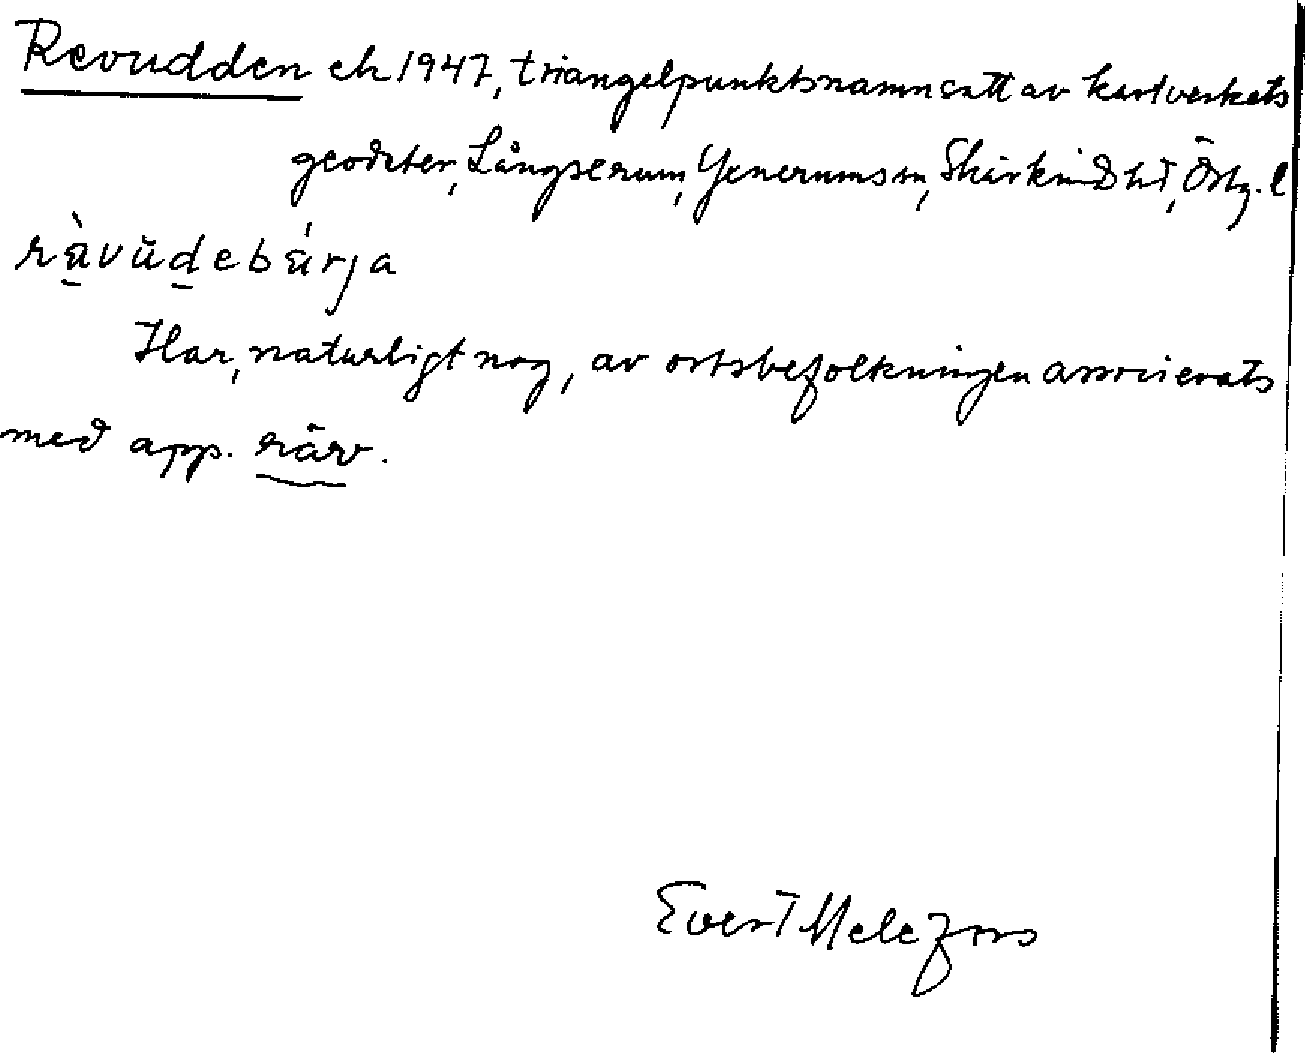 Revudden ek 1947, triangelpunktsnamn satt av kartverkets
geodeter, Långserum, Yxnerums sn, Skärkinds hd, Östg. l
rä̀vŭdebä́rja
Har, naturligt nog, av ortsbefolkningen associerats
med app. räv.
Evert Melefors